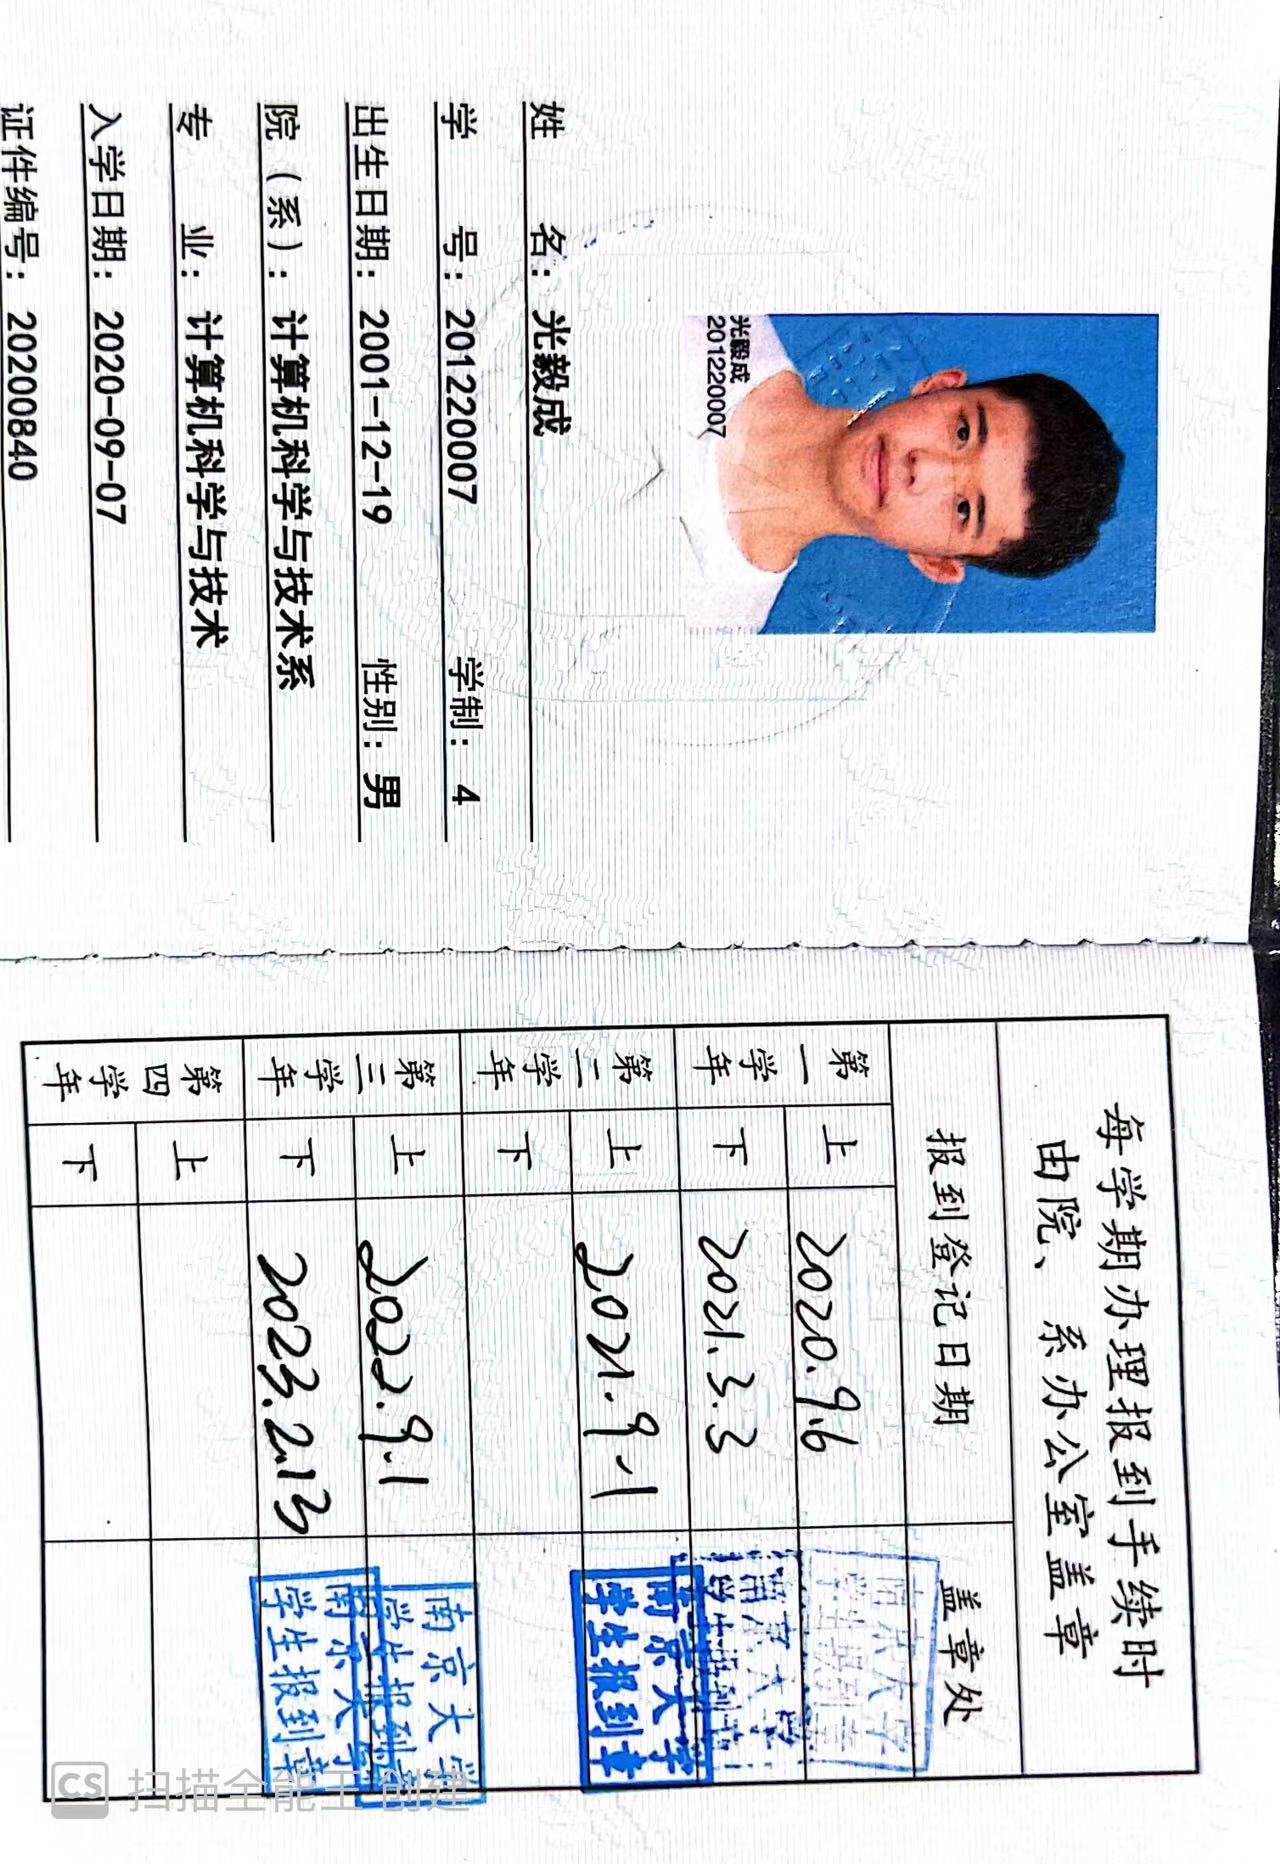 光毅成
201220007
姓 名：光毅成
学 号：201220007 学制：4
出生日期：2001-12-19 性别：男
院（系）：计算机科学与技术系
专 业：计算机科学与技术
入学日期：2020-09-07
证件编号：202000840
每学期办理报到手续时
由院、系办公室盖章
报到登记日期 盖章处
第一学年 上 2020.9.6 南京大学 学生报到章
下 2021.3.3 南京大学 学生报到章
第二学年 上 2021.9.1 南京大学 学生报到章
下
第三学年 上 2022.9.1 南京大学 学生报到章
下 2023.2.13 南京大学 学生报到章
第四学年 上
下
CS 扫描全能王 创建